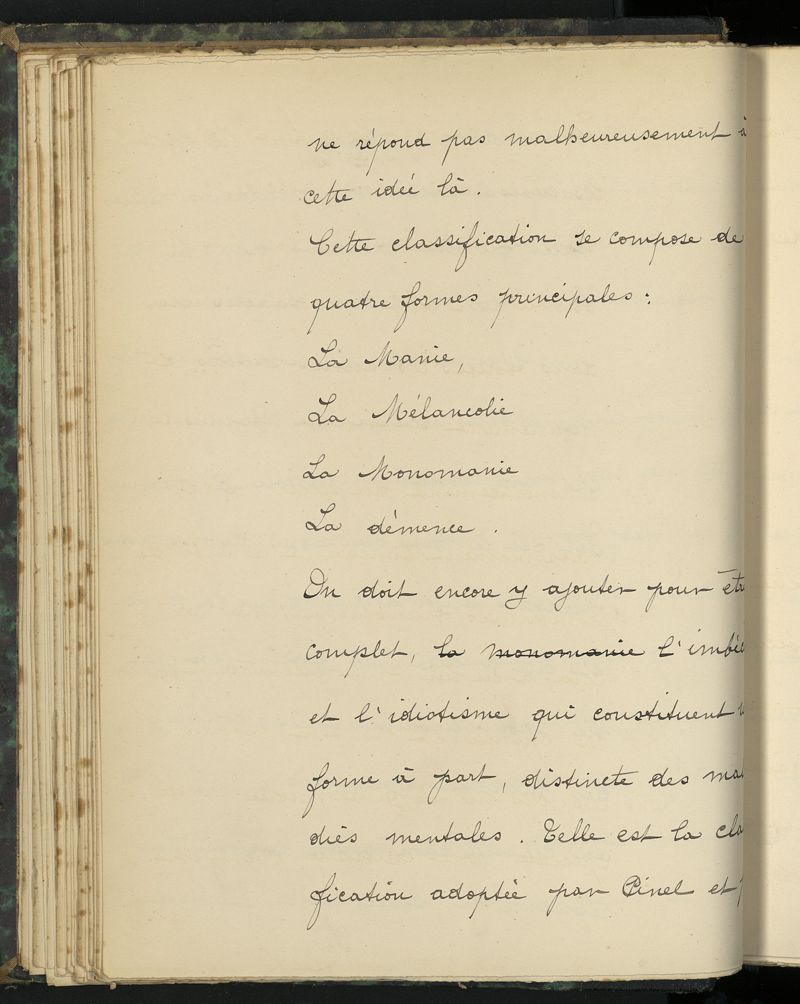 ne répond pas malheureusement à
cette idée là.
Cette classification se compose de
quatre formes principales :
La Manie,
La Mélancolie
La Monomanie
La démence .
On doit encore y ajouter pour êtr
complet, la monomanie l'imbé
et l'idiotisme qui constituent
forme à part, distincte des mal
dies mentales. Telle est la cla
fication adoptée par Pinel et